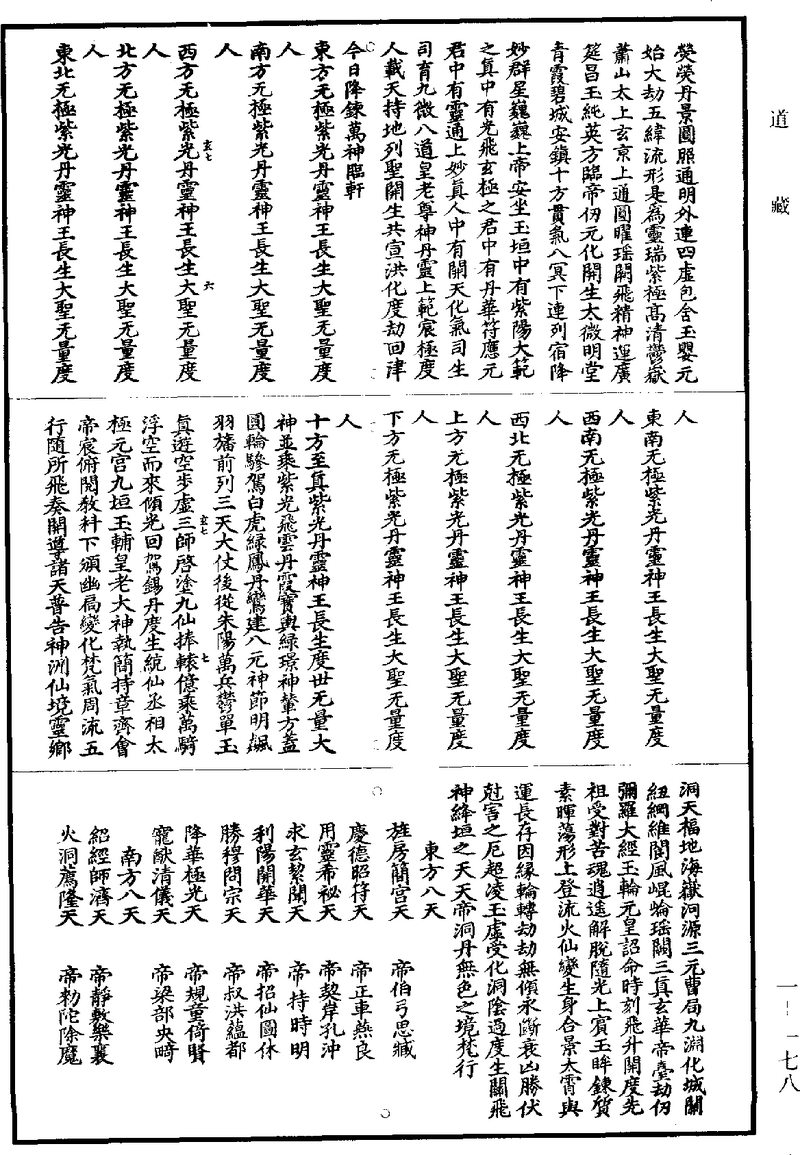 道藏
熒熒丹景圓照通明外連四虛包含玉嬰元
始大劫五緯流形是為靈瑞紫極高清鬱嶽
蕭山太上玄京上道圓曜瑶闕飛精神運廣
筵昌玉純英方臨帝仞元化開生太微明堂
青霞碧城安鎮十方貫氣八冥下連列宿降
妙群星巍巍上帝安坐玉垣中有紫陽大範
之真中有光飛玄極之君中有丹華符應元
君中有靈通上妙真人中有開天化氣司生
司育九微八道皇老尊神丹靈上範宸極度
人載天持地列聖開生共宣洪化度劫回津
今日降鍊萬神臨軒
東方无極紫光丹靈神王長生大聖无量度
人
南方无極紫光丹靈神王長生大聖无量度
人
西方无極紫光丹靈神王長生大聖无量度
人
北方无極紫光丹靈神王長生大聖无量度
人
東北无極紫光丹靈神王長生大聖无量度
玄七
六
人
東南无極紫光丹靈神王長生大聖无量度
人
西南无極紫光丹靈神王長生大聖无量度
人
西北无極紫光丹靈神王長生大聖无量度
人
上方无極紫光丹靈神王長生大聖无量度
人
下方无極紫光丹靈神王長生大聖无量度
人
十方至真紫光丹靈神王長生度世无量大
神並乘紫光飛雲丹霞寶輿綠璟神輦方蓋
圓輪驂駕白虎綠鳳丹鸞建八元神節明飆
羽旛前列三天大仗後從朱陽萬兵鬱單玉
真遊空步虛三師啓塗九仙捧轅億乘萬騎
浮空而來傾光回駕錫丹度生統仙丞相太
極元宫九垣玉輔皇老大神執簡持章齊會
帝宸俯閱教科下頒幽扃變化梵氣周流五
行隨所飛奏開導諸天普告神洲仙境靈鄉
玄七
七
洞天福地海嶽河源三元曹局九淵化城關
紐綱維閬風崐崘瑶闕三真玄華帝臺劫仞
彌羅大經玉輪元皇詔命時刻飛升開度先
祖受對苦魂逍遥解脫隨光上賓玉眸鍊質
素暉蕩形上登流火仙變生身合景太霄與
運長存因緣輪轉劫劫無傾永斷衰凶勝伏
尅害之厄超凌玉虛受化洞陰過度生關飛
神絳垣之天天帝洞丹無色之境梵行
東方八天
旌房簡宫天　帝伯弓思臧
慶德昭符天　帝正車燕良
用靈希祕天　帝契岸孔沖
求玄絜闕天　帝持時明
利陽開華天　帝招仙圖休
勝穆問宗天　帝叔洪蘊都
降華極光天　帝規童倚賢
寵猷清儀天　帝梁部央畸
南方八天
紹經師濟天　帝靜敷樂襄
火洞薦隆天　帝勑陀除魔
一－一七八